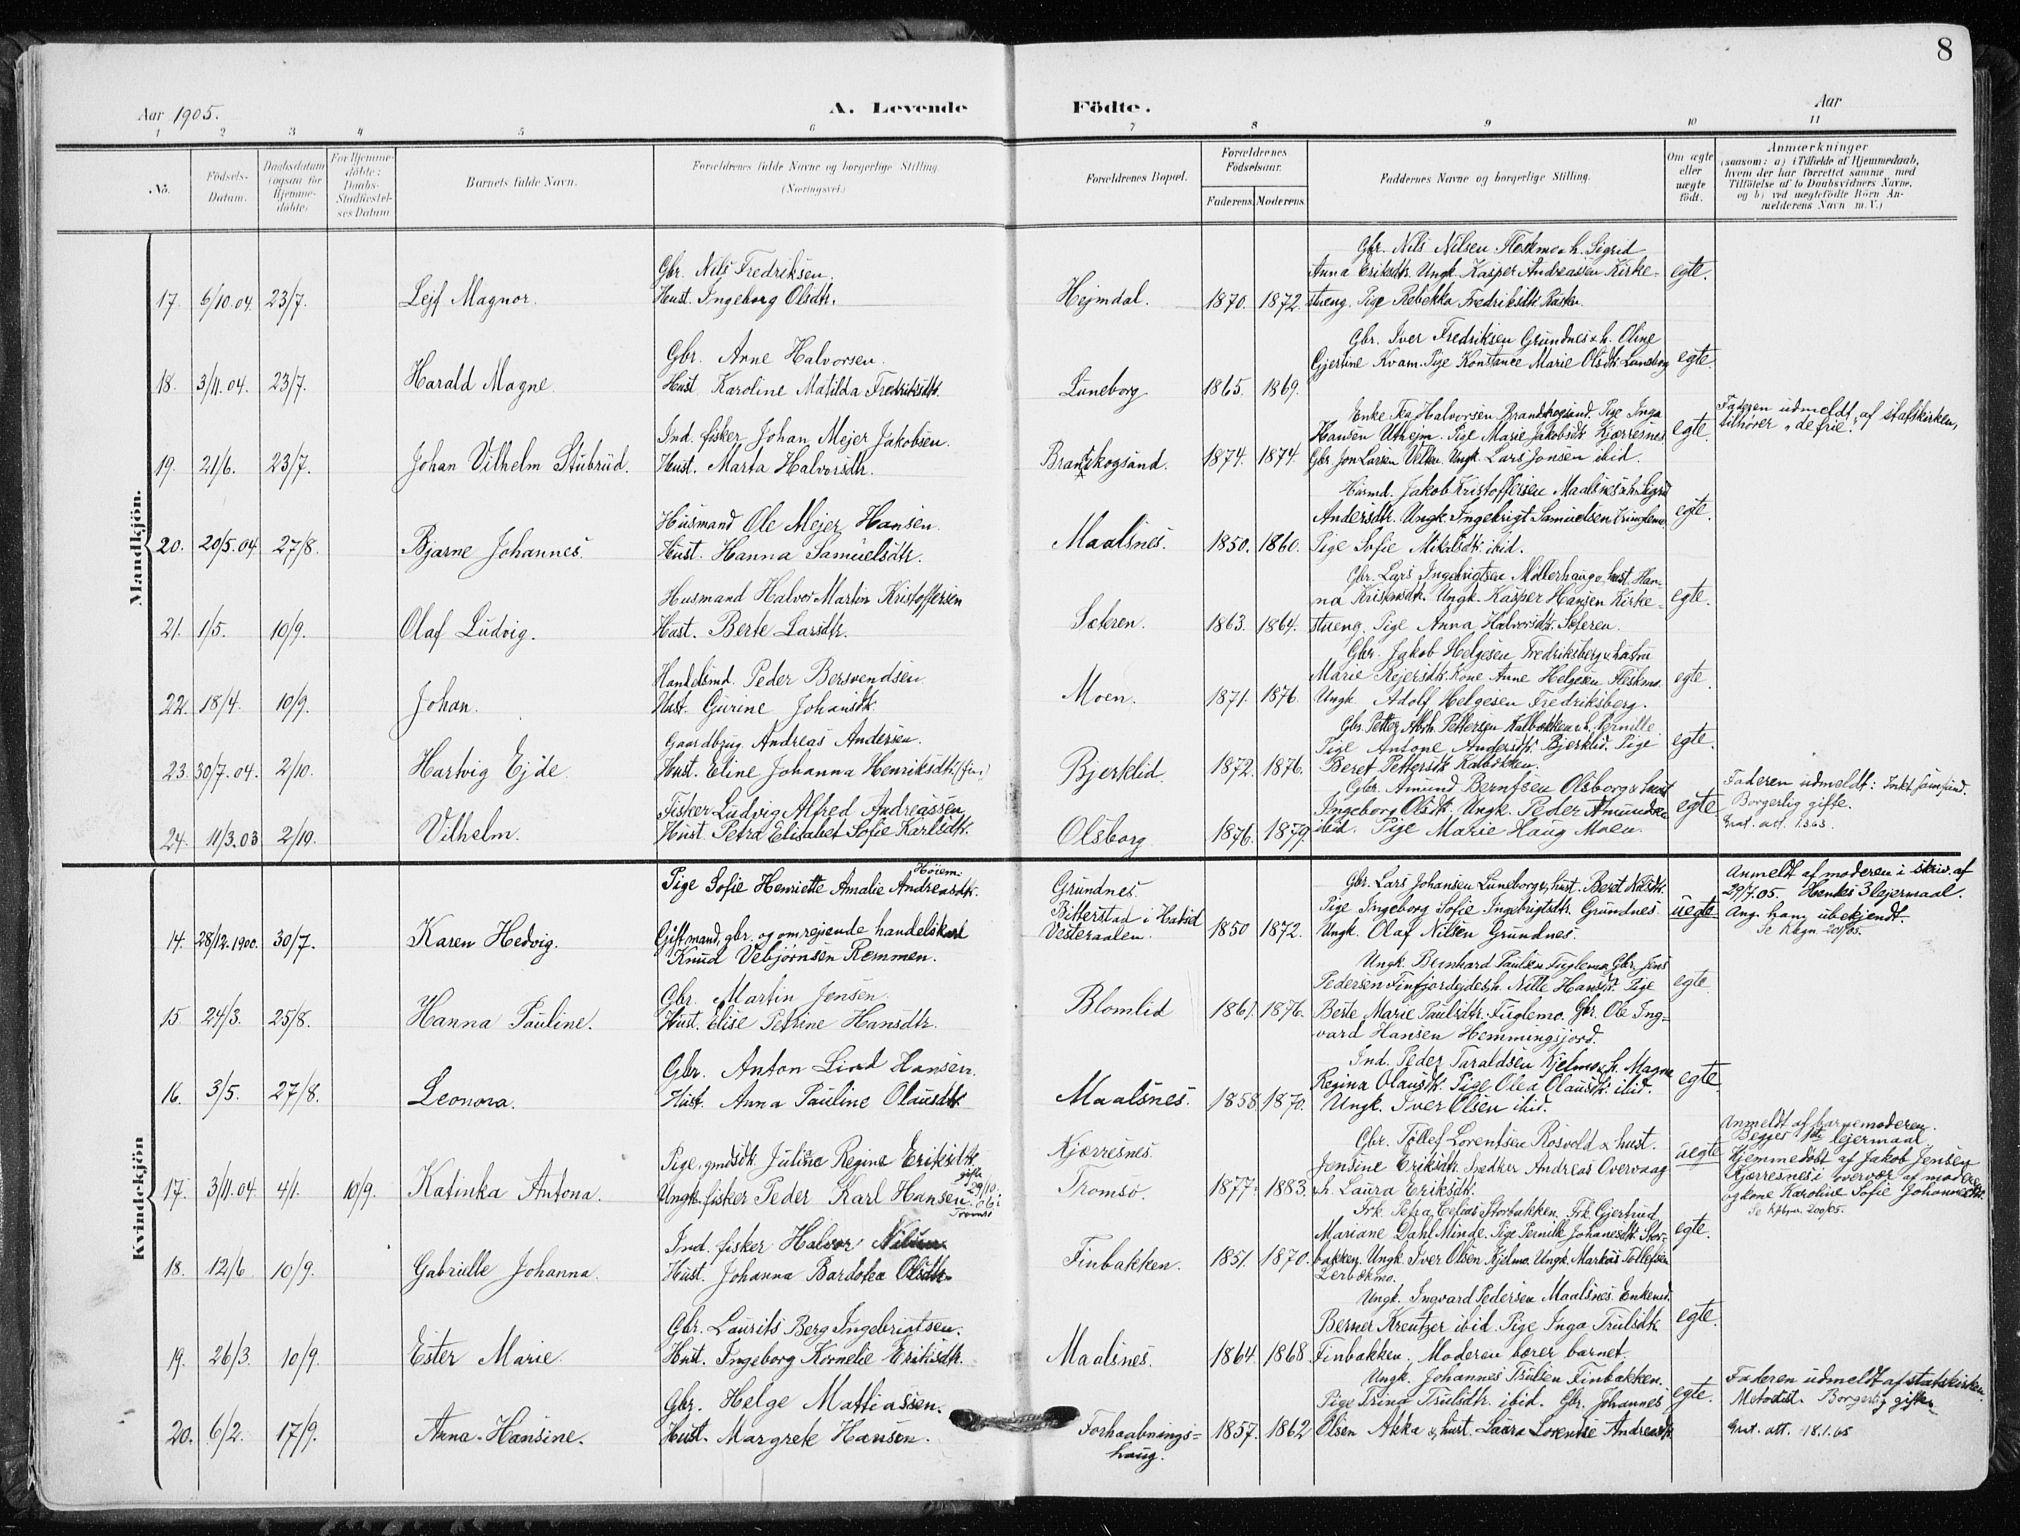 8
Aar 1905.
A. Levende
Födte.
Aar
1 2 3 4 5 6 7 8 9 10 11
No.
Födsels-Datum.
Daabsdatum (ogsaa for Hjemme-döbte).
For Hjemme-döbte: Daabs-Stadfæstel-ses Datum
Barnets fulde Navn.
Forældrenes fulde Navne og borgerlige Stilling.
(Næringsvei.)
Forældrenes Bopæl.
Forældrenes Födselsaar.
Faderens. Moderens.
Faddernes Navne og borgerlige Stilling.
Om ægte eller uægte födt.
Anmærkninger
(saasom: a) i Tilfælde af Hjemmedaab,
hvem der har forrettet samme, med
Tilföielse af to Daabsvidners Navne,
og b) ved uægtefödte Börn An-
melderens Navn m. V.)
Mandkjön.
Gbr. Nils Fredriksen.
17. 6/10.04 23/7. Lejf Magnor. Hust. Ingeborg Olsdtr. Hejmdal. 1870. 1872.
Gbr. Nils Nilsen Fleskmo & h. Sigrid
Anna Eriksdtr. Ungk. Kasper Andreassen Kirke-
stueng. Pige Rebekka Fredriksdtr.
egte.
Gbr. Arne Halvorsen.
18. 3/11.04. 23/7. Harald Magne. Hust. Karoline Matilda Fredriksdtr. Luneborg 1865. 1869.
Gbr. Iver Fredriksen Grundnes & h. Oline
Gjertine Kvam. Pige Konstance Marie Olsdtr. Luneborg
egte.
Ind. fisker Johan Mejer Jakobsen.
19. 21/6. 23/7. Johan Vilhelm Stubrud. Hust. Marta Halvorsdtr. Brandskogsund. 1874. 1874.
Enke Halvorsen Brandskogsund. Pige Inga
Hansen Uthejm. Pige Marie Jakobsdtr. Kjærresnes
Gbr. Jon Larsen Ungk. Lars Jonsen ibid.
egte.
Faderen udmeldt af statskirken,
tilhører "de frie".
Husmand Ole Mejer Hansen.
20. 20/5.04 27/8. Bjarne Johannes. Hust. Hanna Samuelsdtr. Maalsnes. 1850. 1860.
Husmd. Jakob Kristoffersen Maalsnes & h. Sigrid
Andersdtr. Ungk. Ingebrigt Samuelsen
Pige Sofie Mikalsdtr. ibid.
egte.
Husmand Halvor Martin Kristoffersen
21. 1/5. 10/9. Olaf Ludvig. Hust. Berte Larsdtr. Sæteren. 1863. 1864.
Gbr. Lars Ingebrigtsen Møllerhaug & hust. Han-
na Kristensdtr. Ungk. Kasper Hansen Kirke-
stueng. Pige Anna Halvorsdtr. Sæteren.
egte.
Handelsmd. Peder Bersvendsen
22. 18/4. 10/9. Johan. Hust. Gurine Johansdtr. Moen. 1871. 1876.
Gbr. Jakob Helgesen Fredriksberg & hustru
Marie Rejersdtr. Kone Anne Helgesen Fleskmo.
Ungk. Adolf Helgesen Fredriksberg.
egte.
Gaardbrug. Andreas Andersen.
23. 30/7.04. 2/10. Hartvig Ejde. Hust. Eline Johanna Henriksdtr. Bjerklid. 1872. 1876.
Gbr. Petter Abrh. Pettersen Kalbakken & h. Pernille
Pige Antone Andersdtr. Bjerklid. Pige
Beret Pettersdtr. Kalbakken.
egte.
Fisker Ludvig Alfred Andreassen
24. 11/3.03 2/10. Vilhelm. Hust. Petra Elisabet Sofie Karlsdtr. Olsborg 1876. 1879.
Gbr. Amund Berntsen Olsborg & hust
Ingeborg Olsdtr. Ungk. Peder Amundsen
ibid. Pige Marie Haug Moen.
egte
Faderen udmeldt:
Borgerlig gifte.
Kvindekjön
Höiem:
Pige Sofie Henriette Amalie Andreasdtr. Grundnes.
14. 28/12.1900. 30/7. Karen Hedvig. Gift mand, gbr. og omrejsende handelskarl Bitterstad i Hadsel Vesteraalen. 1850 1872.
Knud Vebjørnsen Remmen.
Gbr. Lars Johansen Luneborg & hust. Beret Nilsdtr.
Pige Ingeborg Sofie Ingebrigtsdtr. Grundnes
Ungk. Olaf Nilsen Grundnes.
uegte
Anmeldt af moderen i skriv. af
29/7.05. Hendes 3 lejermaal.
Ang. hans ubekjendt.
Gbr. Martin Jensen.
15. 24/3. 25/8. Hanna Pauline. Hust. Elise Petrine Hansdtr. Blomlid 1867. 1876.
Ungk. Bernhard Paulsen Fuglemo. Gbr. Jens
Pedersen Finfjordejdet & h. Nille Hansd. Pige
Berte Marie Paulsdtr. Fuglemo. Gbr. Ole Ing-
vard Hansen Hemmingsjord.
egte.
Gbr. Anton Lind Hansen.
16. 3/5. 27/8. Leonora. Hust. Anna Pauline Olausdtr. Maalsnes. 1858 1870.
Ind. Peder Taraldsen Kjelmo & h. Magna
Regina Olausdtr. Pige Olea Olausdtr. ibid.
Ungk. Iver Olsen ibid.
egte
Pige, gmdsdtr. Juline Regine Eriksdtr. Kjærresnes.
gifte 29/10.06 i Tromsø
17. 3/11.04 4/1. 10/9. Katinka Antona. Ungk. fisker Peder Karl Hansen. Tromsø. 1877. 1883.
Gbr. Tollef Lorentsen Rosvold & hust.
Jensine Eriksdtr. Snedker Andreas Overvaag
& h. Laura Eriksdtr.
uegte
Anmeldt af barnemoderen.
Begges 1ste lejermaal
Hjemmedøbt af Jakob Jensen
Kjærresnes i overvær af moderen
og kone Karoline Sofie Johannesdtr.
Ind. fisker Halvor Nilsen
18. 12/6 10/9. Gabrielle Johanna. Hust. Johanna Bardotea Olsdtr. Finbakken. 1851. 1870.
Frk. Petra Eglias Storbakken. Frk. Gjertrud
Mariane Dahl Minde. Pige Pernille Johannesdtr. Stor-
bakken. Ungk. Iver Olsen Kjelmo. Ungk. Markus Tollefsen
Lerbækmo.
egte.
Gbr. Laurits Berg Ingebrigtsen.
19. 26/3. 10/9. Ester Marie. Hust. Ingeborg Kornelie Eriksdtr. Maalsnes. 1864 1868
Ungk. Ingvard Pedersen Maalsnes. Enkemd.
Berner Kreutzer ibid. Pige Inga Trulsdtr.
Finbakken. Moderen bærer barnet.
egte.
Gbr. Helge Mattiassen.
20. 6/2. 17/9. Anna Hansine. Hust. Margrete Hansen. Forhaabnings-haug. 1857. 1862
Ungk. Johannes Trulsen Finbakken.
Pige Trina Trulsdtr. ibid. Gbr. Johannes
Olsen Akka & hust. Laura Lorentse Andreasdtr.
egte.
Faderen udmeldt af statskirken
Metodist. Borgerlig gifte.
att. 18.1.05